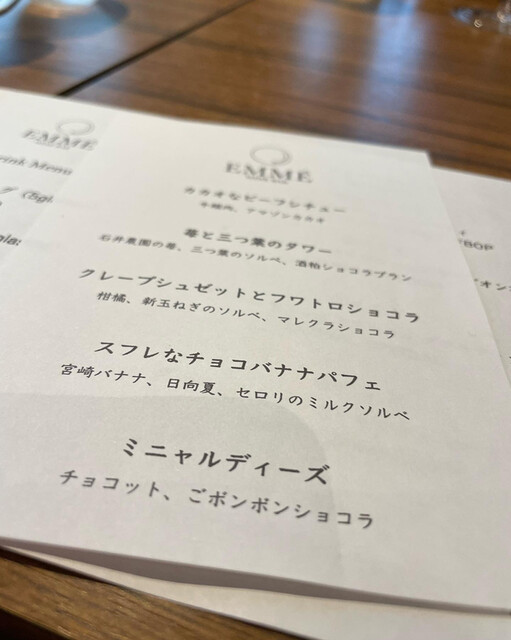 EMMÉ
カカオなビーフシチュー
牛頬肉、アマゾンカカオ
苺と三つ葉のタワー
石井農園の苺、三つ葉のソルベ、酒粕ショコラブラン
クレープシュゼットとフワトロショコラ
柑橘、新玉ねぎのソルベ、マレクラショコラ
スフレなチョコバナナパフェ
宮崎バナナ、日向夏、セロリのミルクソルベ
ミニャルディーズ
チョコット、ごボンボンショコラ
EMMÉ
rink Menu